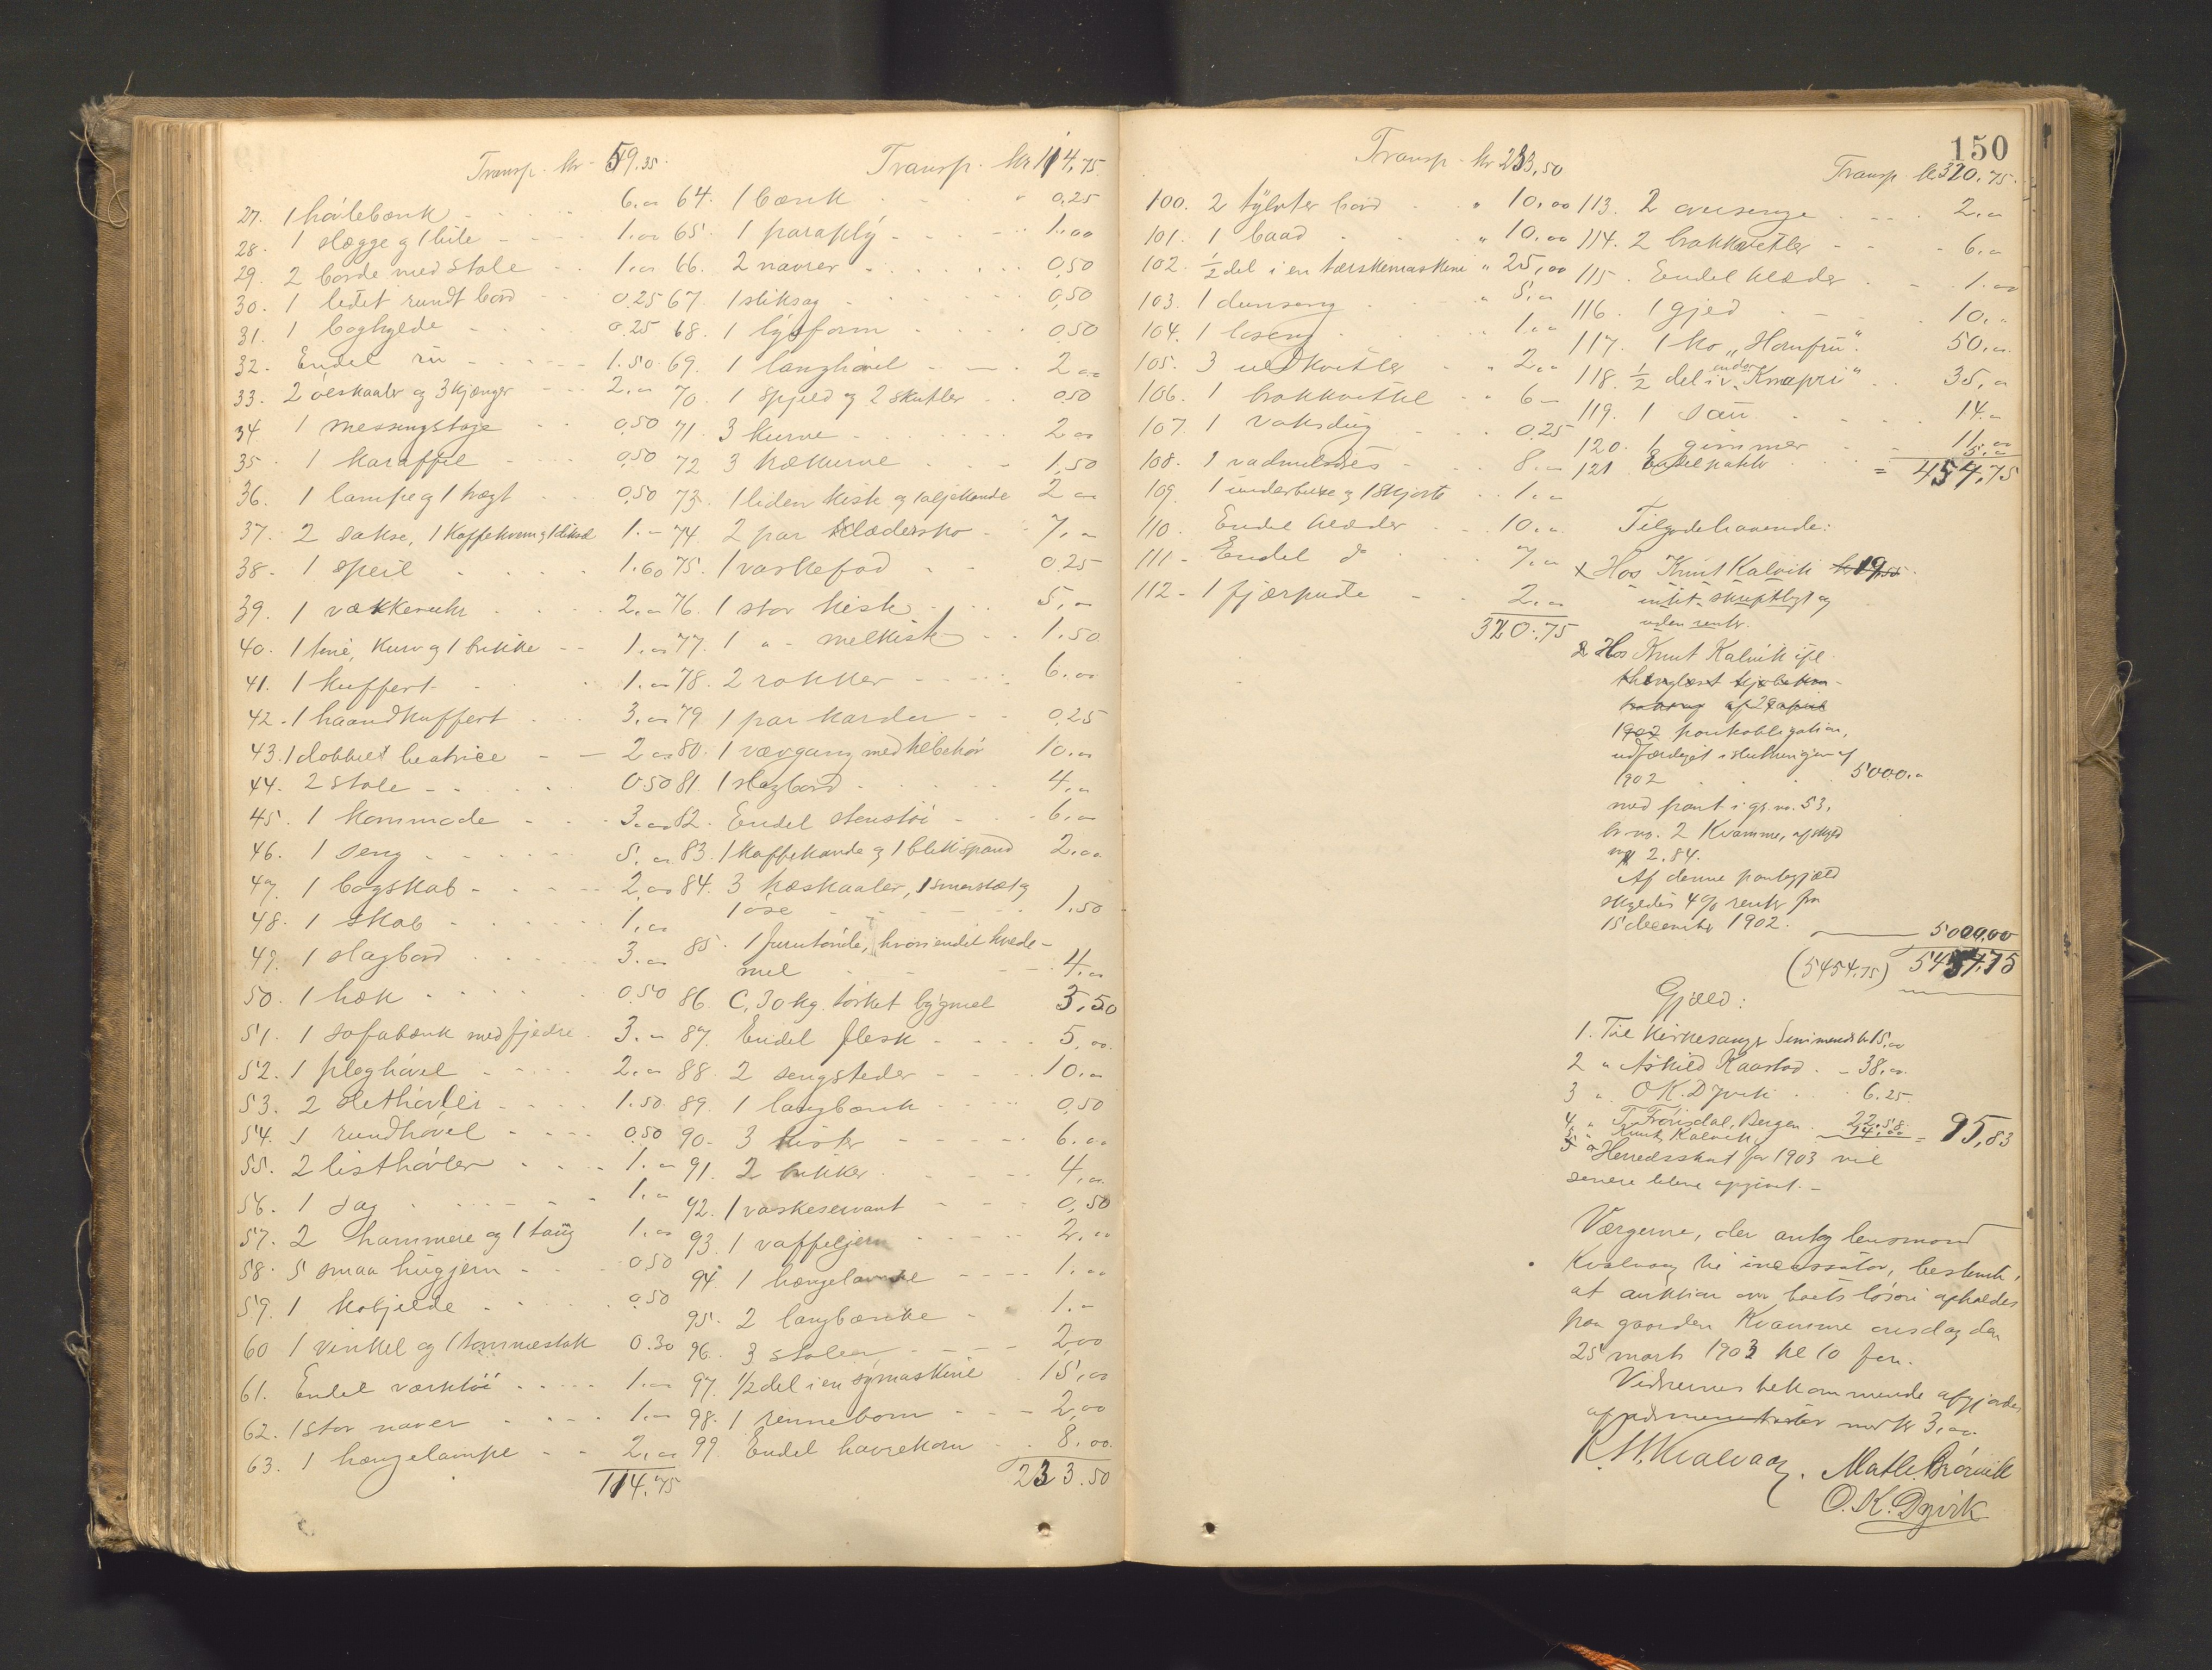 Transp. kr 59.35.
27. 1 hövlebænk - - - 6.00
28. 1 slægge og 1 bile - - - 1.00
29. 2 borde med stole - - 1.00
30. 1 lidet rundt bord - - 0.25
31. 1 boghylde - - - 0.25
32. Endel - - - 1.50
33. 2 ölskaaler og 3 kjænger - - 2.00
34. 1 messingstage - - 0.50
35. 1 karaffel - - - 0.50
36. 1 lampe og 1 vægt - - 0.50
37. 2 sakse, 1 kaffekvern og 1 1.-
38. 1 speil - - - 1.60
39. 1 vækkeruhr - - - 2.00
40. 1 tine, kurv og 1 bikke - - 1.00
41. 1 kuffert - - - 1.00
42. 1 haandkuffert - - 3.00
43. 1 dobbelt - - 2.00
44. 2 stole - - - 0.50
45. 1 kommode - - - 3.00
46. 1 seng - - - 5.00
47. 1 bogskab - - - 2.00
48. 1 skab - - - 1.00
49. 1 slagbord - - - 3.00
50. 1 hæk - - - 0.50
51. 1 sofabænk med fjedre - 3.-
52. 1 ploghövel - - - 2.00
53. 2 slethövler - - - 1.50
54. 1 rundhövel - - - 0.50
55. 2 listhövler - - - 1.-
56. 1 sag - - - 1.-
57. 2 hammere og 1 tang 1.00
58. 5 smaa hugjern - - 0.50
59. 1 kobjelde - - - 0.50
60. 1 vinkel og 1 tommestok 0.30
61. Endel værktöi - - - 1.00
62. 1 stor naver - - - 1.00
63. 1 hængelampe - - 2.00
114.75
Transp. kr 114.75
64. 1 bænk - - - 0,25
65. 1 paraply - - - 1.00
66. 2 navrer - - - 0,50
67. 1 stiksag - - - 0,50
68. 1 lysform - - - 0,50
69. 1 langhövel - - - 2.00
70. 1 spjeld og 2 skutler - - 0,50
71. 3 kurve - - - 2.00
72. 3 hækurve - - - 1,50
73. 1 liden kiste og 1 oljekande 2.00
74. 2 par klædersko - - 7.-
75. 1 vaskefad - - 0,25
76. 1 stor kiste - - 5.00
77. 1 " melkiste - - 1.50
78. 2 rokker - - - 6.00
79. 1 par karder - - 0,25
80. 1 vævgang med tilbehör 10.00
81. 1 slagbord - - - 4.00
82. Endel stentöi - - - 6.00
83. 1 kaffekande og 1 blikspand 2.00
84. 3 træskaaler, 1 og
1 öse - - - 1,50
85. 1 furutönde, hvori endel hvede-
mel - - - 4.00
86. C. 30 kg. törket bygmel 3,50
87. Endel flesk - - - 5,00
88. 2 sengsteder - - - 10.00
89. 1 langbænk - - - 0,50
90. 3 kister - - - 6.00
91. 2 bikker - - - 4.00
92. 1 vaskeservant - - 0,50
93. 1 vaffeljern - - - 2,00
94. 1 hængelampe - - - 1.00
95. 2 langbænke - - 1.-
96. 3 stoler - - - 2,00
97. 1/2 del i en symaskine 15,00
98. 1 rennebom - - - 2,00
99. Endel havrekorn - - 8,00
233.50
150
Transp. kr 233,50
100. 2 tylvter bord - " 10,00
101. 1 baad - - " 10,00
102. 1/2 del i en tærskemaskine " 25,00
103. 1 dunseng - - " 5,00
104. 1 loseng - - " 1.00
105. 3 uldkvitler - " 2.00
106. 1 brokkvittel - " 6.-
107. 1 voksdug - - 0.25
108. 1 - 8.00
109. 1 underbukse og 1 skjorte - 1.00
110. Endel klæder - - 10.00
111. Endel do - - 7.00
112. 1 fjærpude - - 2.00
320.75
Transp. kr 320.75.
113. 2 oversenge - - - 2.00
114. 2 brokkvitler - - - 6.00
115. Endel klæder - - 1.00
116. 1 gjed - - - 10.-
117. 1 ko „Homfru". 50.00
118. 1/2 del i v. „Knapri" - - 35.00
119. 1 sau - - - 14.00
120. 1 gimmer - - 11.00
121. Endel - - 5.00
= 454,75
Tilgodehavende:
x Hos Knut Kalvik kr 19.50.
intet skriftligt og
uden renter.
2 Hos Knut Kalvik ifl.
1902 pantobligation,
udfærdiget i slutningen af
1902 - - - 5000.00
med pant i gr. no. 53,
br. no. 2 Kvamme, af skyld
mk 2.84.
Af denne pantegjæld
skyldes 4% renter fra
15 december 1902.
5000,00
(5454.75) 5454,75
Gjæld:
1. Til kirkesanger kr 15,00
2 " Askild Kaarstad - 38,00
3 " O. K. Dyvik - - 6.25
4 " T. Fröisdal, Bergen 22.58
5 " Knut Kalvik 14.00 = 95,83
5 " Herredsskat for 1903 vil
senere blive opgivet. -
Værgerne, der antog lensmand
Kvalvaag til incassator, bestemte,
at auktion over boets lösöre afholdes
paa gaarden Kvamme onsdag den
25 marts 1903 kl 10 fm.
Vidnernes tilkommende afgjordes
af med kr 3,00.
R. H. Kvalvaag. Math. Brörvik
O. K. Dyvik